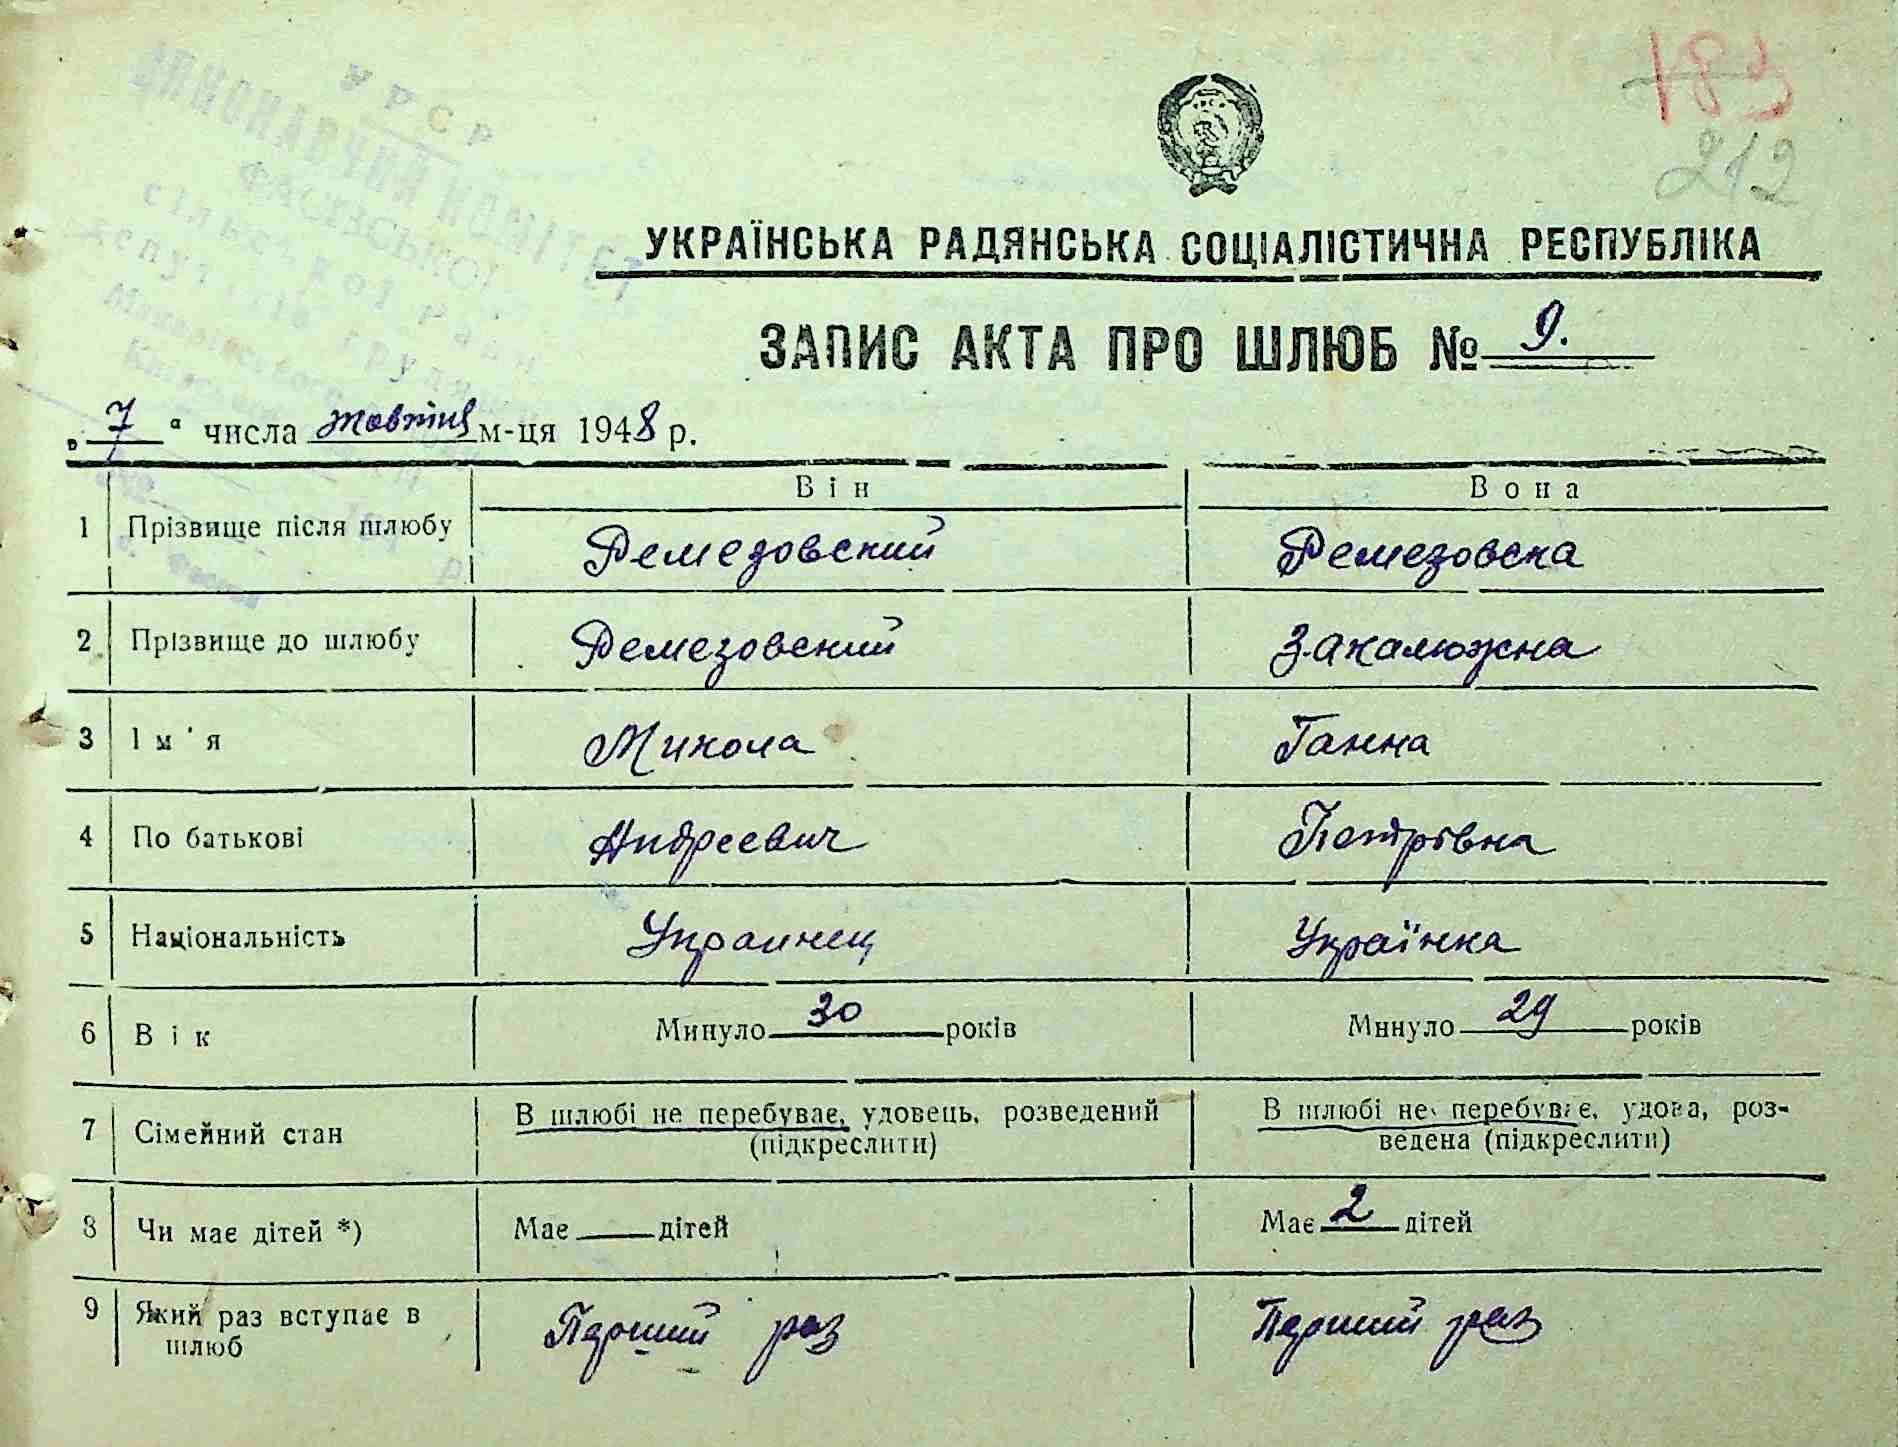 183
212
УРСР
ВИКОНАВЧИЙ КОМІТЕТ
ФАСІВСЬКОЇ
сільської ради
депутатів трудящих
УКРАЇНСЬКА РАДЯНСЬКА СОЦІАЛІСТИЧНА РЕСПУБЛІКА
ЗАПИС АКТА ПРО ШЛЮБ № 9.
„7“ числа жовтня м-ця 1948 р.
Він Вона
1 Прізвище після шлюбу Ремезовский Ремезовска
2 Прізвище до шлюбу Ремезовский Закалюжна
3 Ім'я Микола Ганна
4 По батькові Андреевич Петрівна
5 Національність Украинец Українка
6 Вік Минуло 30 років Минуло 29 років
7 Сімейний стан В шлюбі не перебуває, удовець, розведений В шлюбі не перебуває, удова, роз-
(підкреслити) ведена (підкреслити)
8 Чи має дітей *) Має дітей Має 2 дітей
9 Який раз вступає в Перший раз Перший раз
шлюб